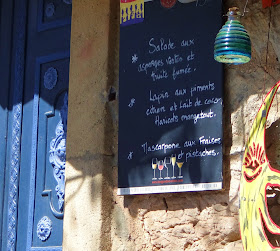 Salade aux
asperges
truite fumée.
Lapin aux piments
citron et Lait de coco,
Haricots mangetout.
Mascarpone aux Fraises
et pistaches.